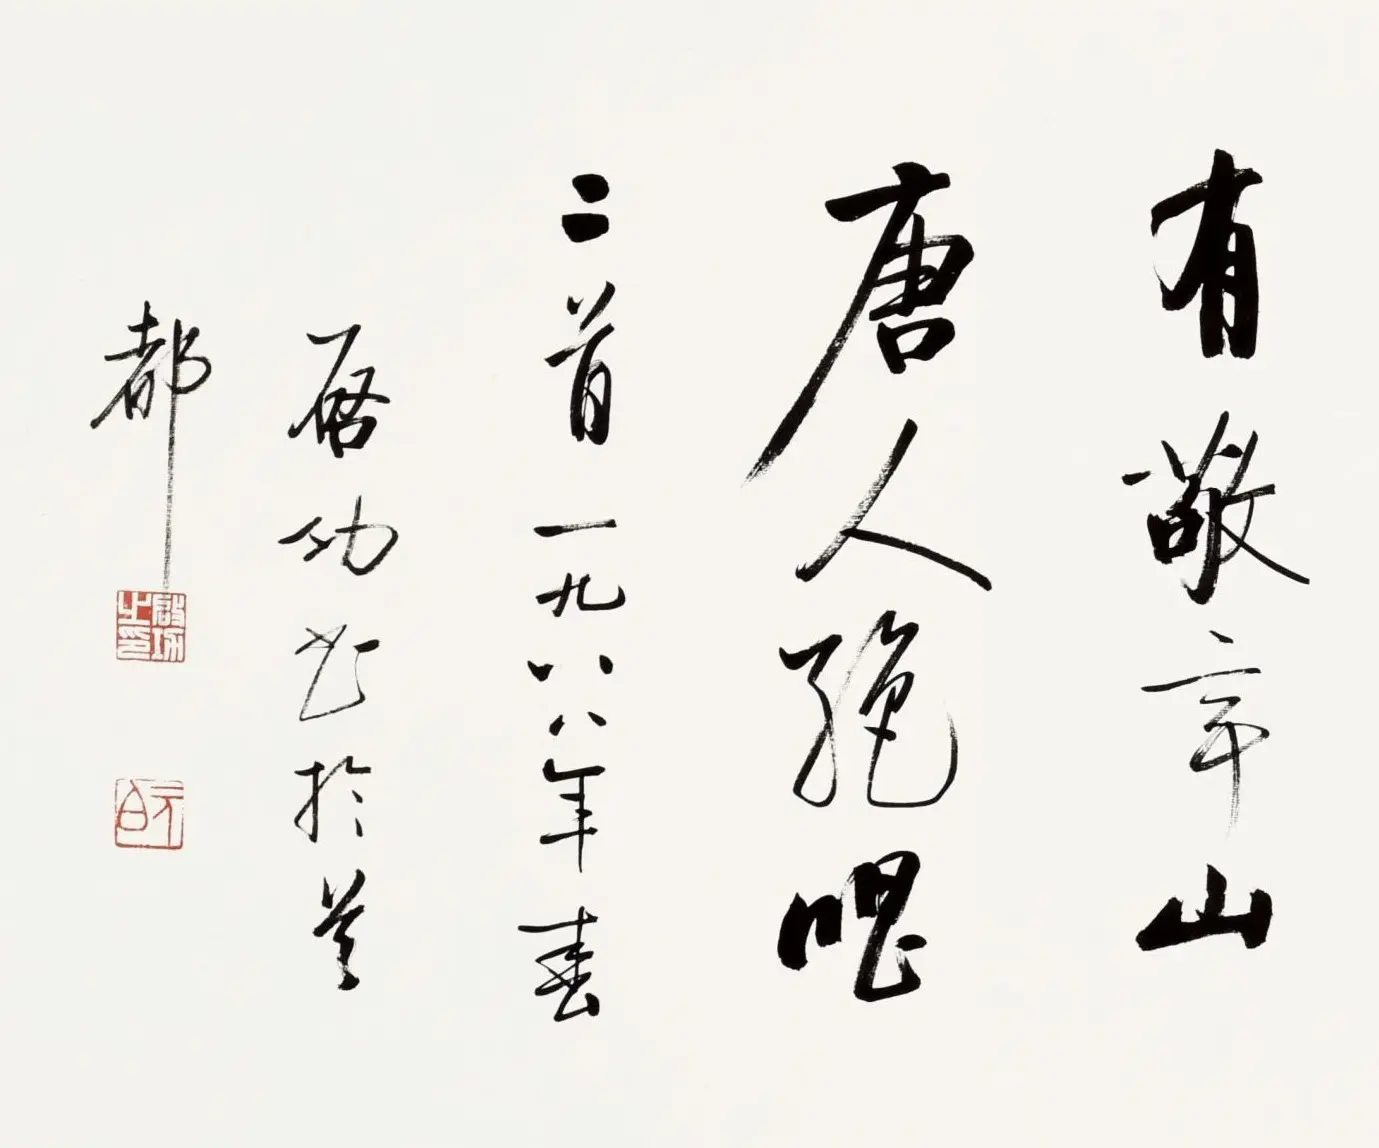 有敬亭山
唐人絕唱
二首一九八八年春
啟功書於首
都
啟功之印
元白